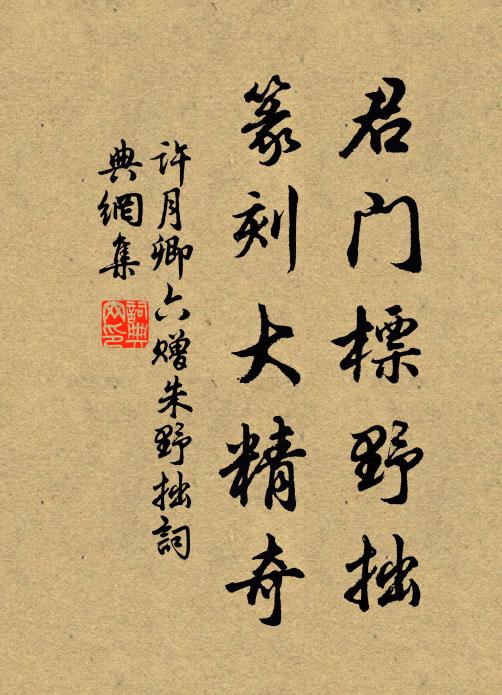 君门標野拙
篆刻大精奇
许月卿六赠朱野拙詞
典網集
詞典網印